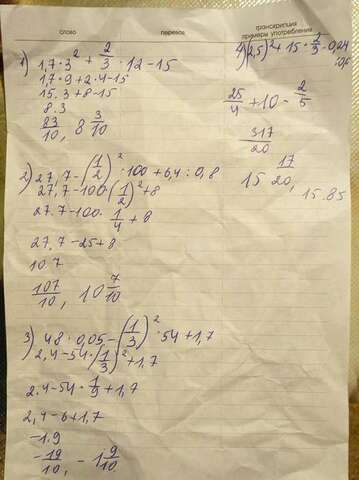 слово перевод транскрипция
примеры употребления
1) 1,7 · 3² + 2/3 · 12 - 15
1,7 · 9 + 2 · 4 - 15
15.3 + 8 - 15
8.3
83/10, 8 3/10
2) 27,7 - (1/2)² · 100 + 6,4 : 0,8
27,7 - 100 · (1/2)² + 8
27.7 - 100 · 1/4 + 8
27,7 - 25 + 8
10.7
107/10, 10 7/10
3) 48 · 0,05 - (1/3)² · 54 + 1,7
2,4 - 54 · (1/3)² + 1,7
2.4 - 54 · 1/9 + 1,7
2,4 - 6 + 1,7
-1.9
-19/10, -1 9/10
4) (2,5)² + 15 · 2/3 - 0,24
:0,6
25/4 + 10 - 2/5
317/20
15 17/20,
15.85